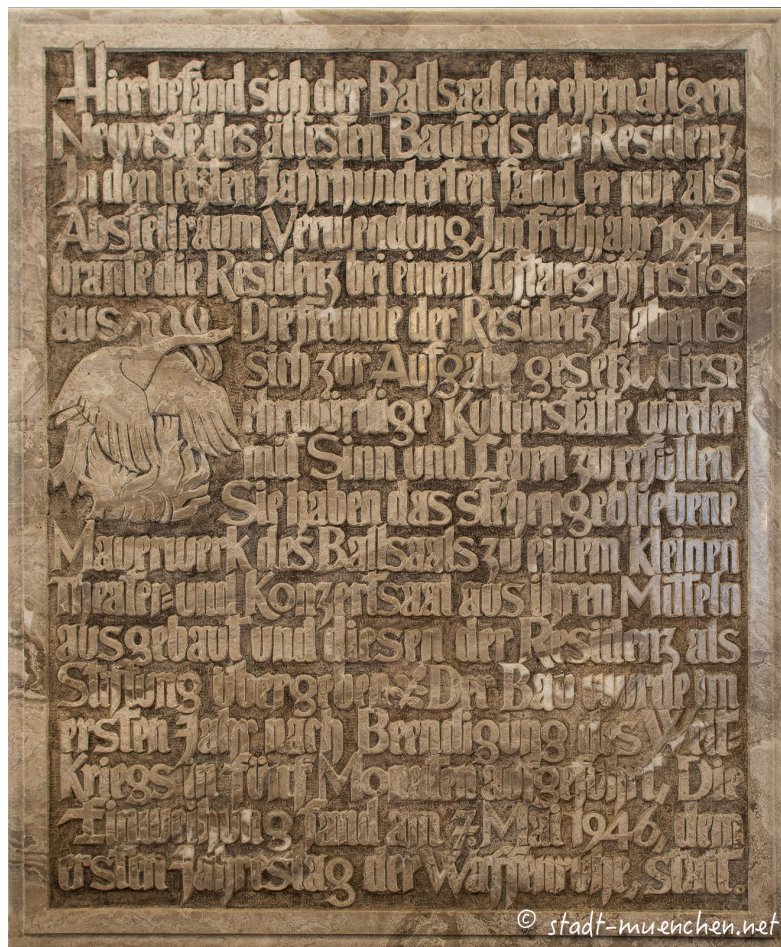 Hier befand sich der Ballsaal der ehemaligen
Neuveste, des ältesten Bauteils der Residenz.
In den letzten Jahrhunderten fand er nur als
Abstellraum Verwendung. Im Frühjahr 1944
brannte die Residenz bei einem Luftangriff restlos
aus Die Freunde der Residenz haben es
sich zur Aufgabe gesetzt, diese
ehrwürdige Kulturstätte wieder
mit Sinn und Leben zu erfüllen.
Sie haben das stehengebliebene
Mauerwerk des Ballsaals zu einem kleinen
Theater= und Konzertsaal aus ihren Mitteln
ausgebaut und diesen der Residenz als
Stiftung übergeben. Der Bau wurde im
ersten Jahr nach Beendigung des Welt=
Kriegs in fünf Monaten ausgeführt. Die
Einweihung fand am 7. Mai 1946, dem
ersten Jahrestag der Waffenruhe, statt.
© stadt-muenchen.net